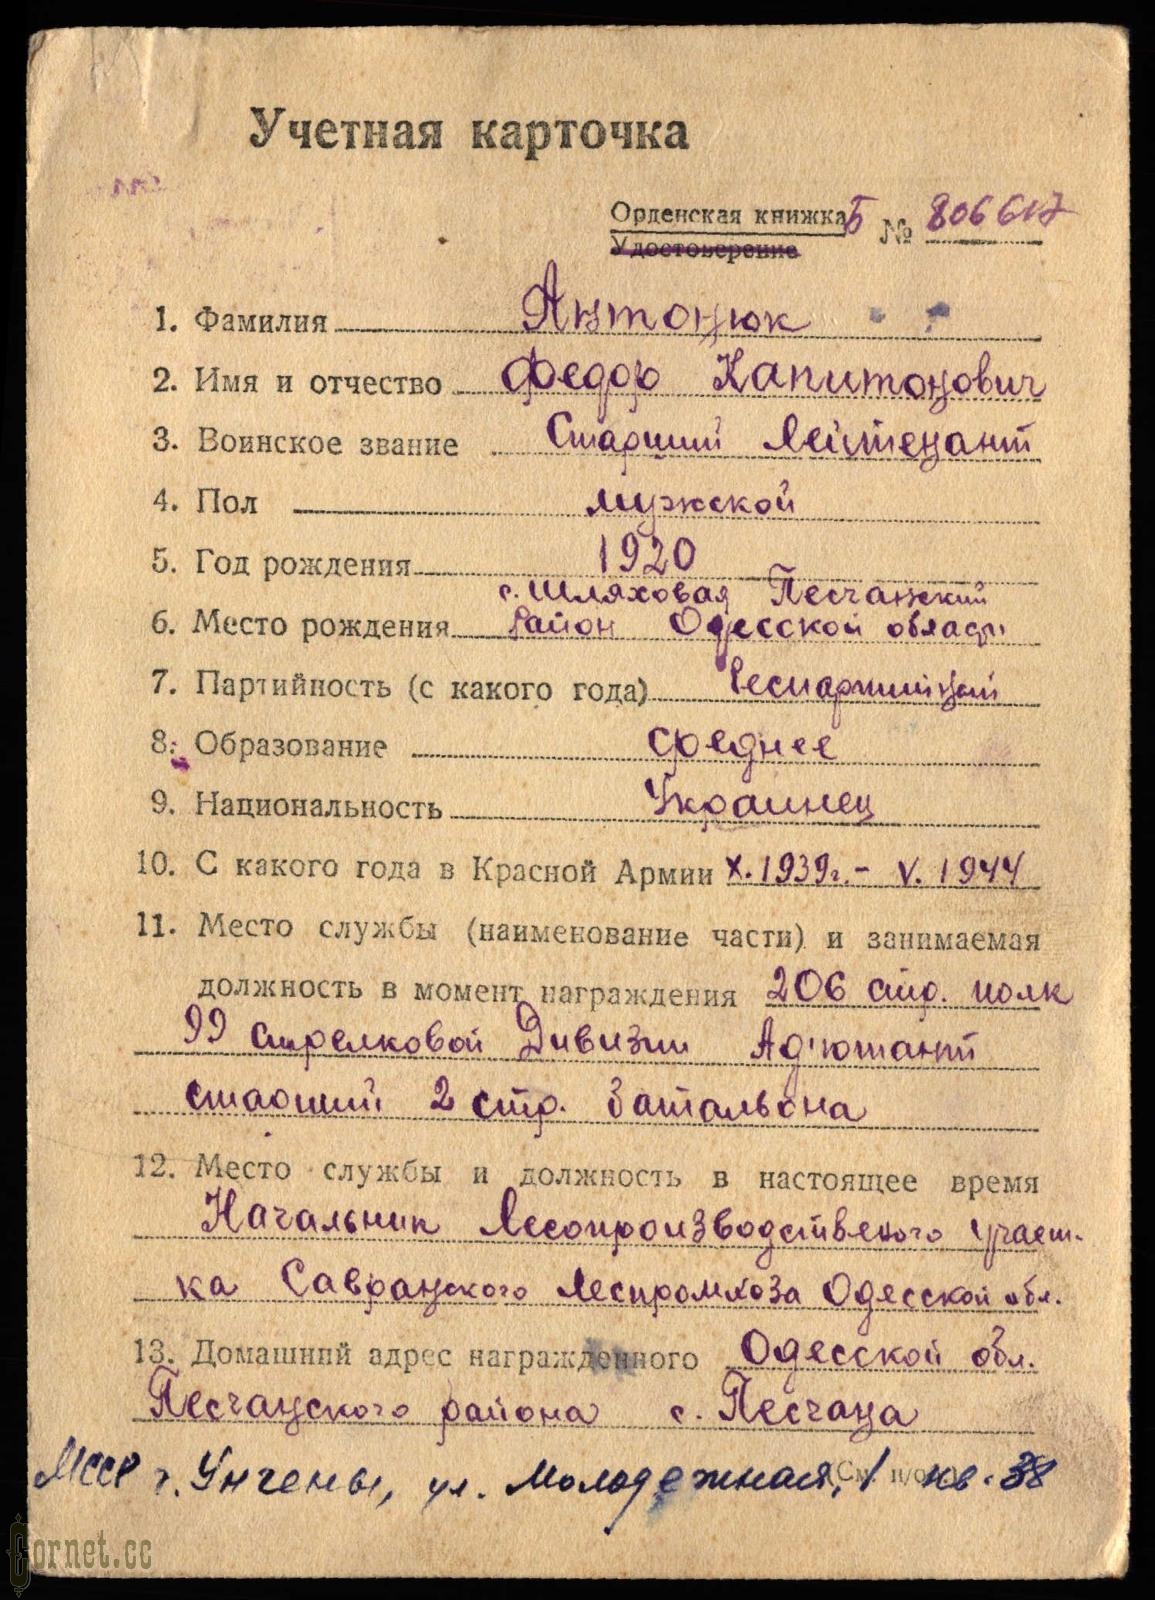 Учетная карточка
Орденская книжка Б № 806617
Удостоверение
1. Фамилия Антонюк
2. Имя и отчество Федор Капитонович
3. Воинское звание Старший Лейтенант
4. Пол мужской
5. Год рождения 1920
с. Шляховая Песчанский
6. Место рождения район Одесской области
7. Партийность (с какого года) Беспартийный
8. Образование среднее
9. Национальность Украинец
10. С какого года в Красной Армии X. 1939г. - V. 1944
11. Место службы (наименование части) и занимаемая
должность в момент награждения 206 стр. полк
99 стрелковой Дивизии Ад'ютант
старший 2 стр. батальона
12. Место службы и должность в настоящее время
Начальник Лесопроизводствено­го участ-
ка Савранского Леспромхоза Одесской обл.
13. Домашний адрес награжденного Одесской обл.
Песчанского района с. Песчана
(См. н/об.)
МССР г. Унгены, ул. Молодежная, 1 кв. 38
Cornet.cc